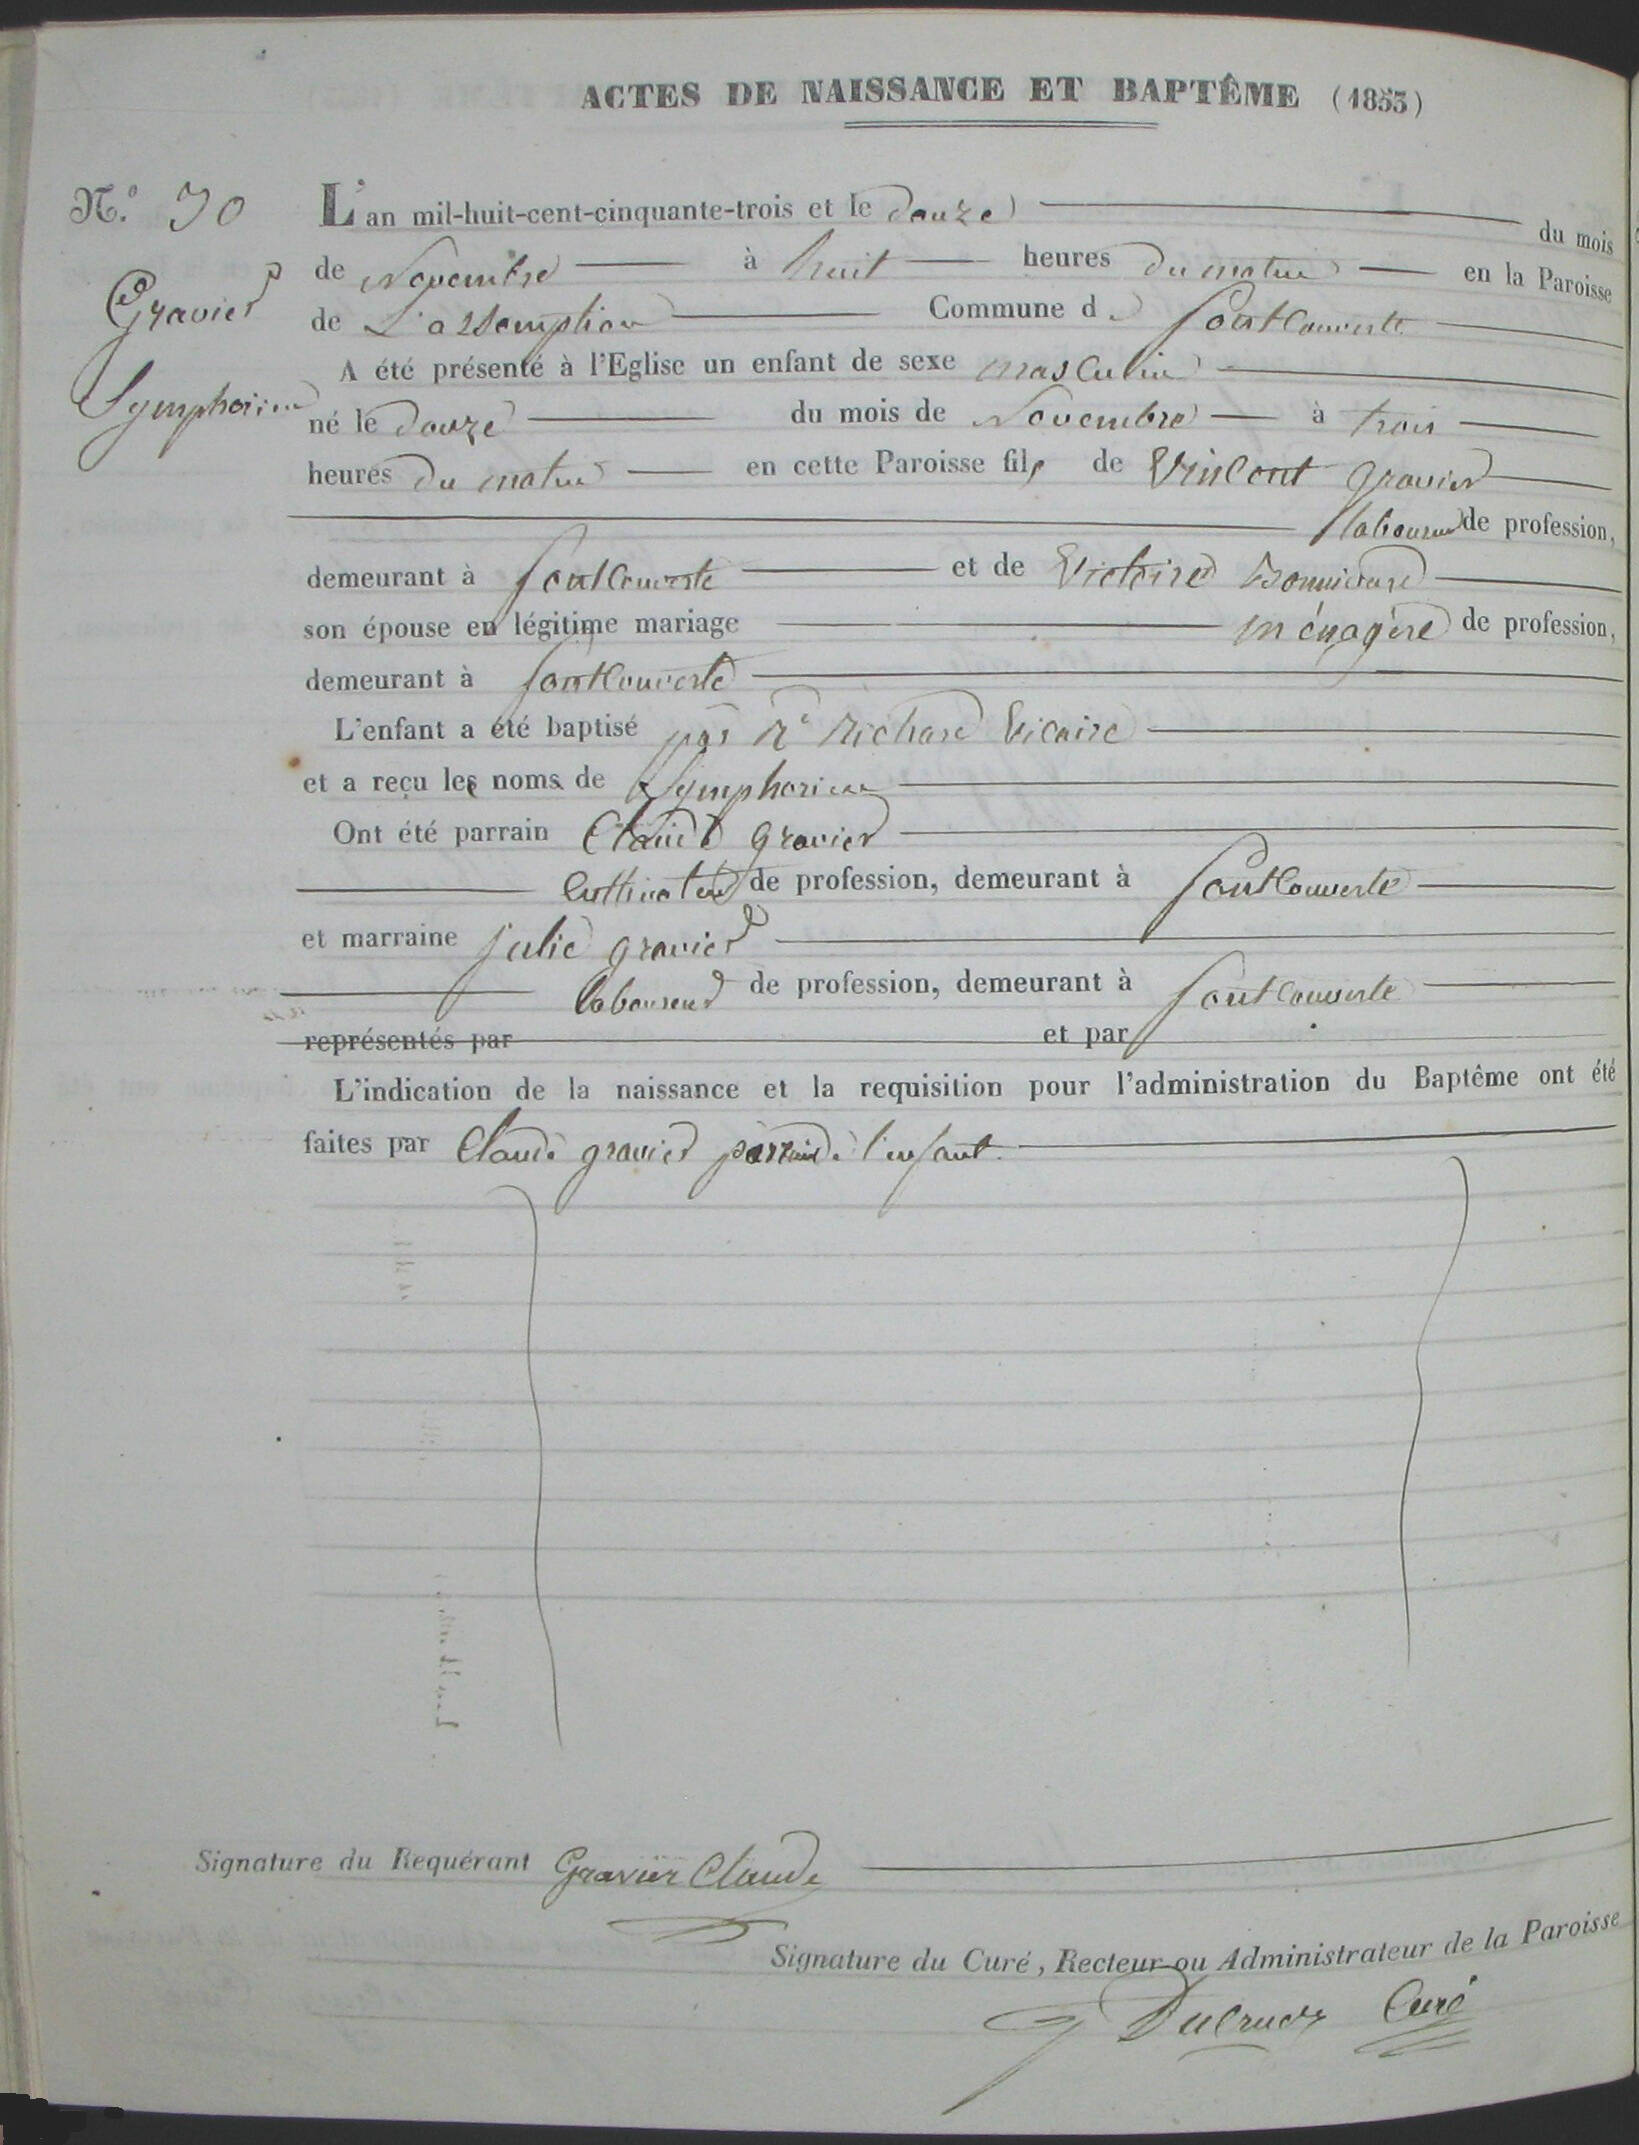 ACTES DE NAISSANCE ET BAPTÊME (1853)
N.° 70
Gravier
Symphorien
L'an mil-huit-cent-cinquante-trois et le douze du mois
de Novembre à huit heures du matin en la Paroisse
de L'assomption Commune de Fontcouverte
A été présenté à l'Eglise un enfant de sexe masculin
né le douze du mois de Novembre à trois
heures du matin en cette Paroisse fils de Vincent gravier
laboureur de profession,
demeurant à fontcouverte et de Victoire
son épouse en légitime mariage ménagère de profession,
demeurant à fontcouverte
L'enfant a été baptisé par Rd Richard Vicaire
et a reçu les noms de Symphorien
Ont été parrain Claude gravier
Cultivateur de profession, demeurant à fontcouverte
et marraine julie gravier
laboureur de profession, demeurant à fontcouverte
représentés par et par
L'indication de la naissance et la requisition pour l'administration du Baptême ont été
faites par Claude gravier parrain de l'enfant.
Signature du Requérant Gravier Claude
Signature du Curé, Recteur ou Administrateur de la Paroisse
Ducruez Curé